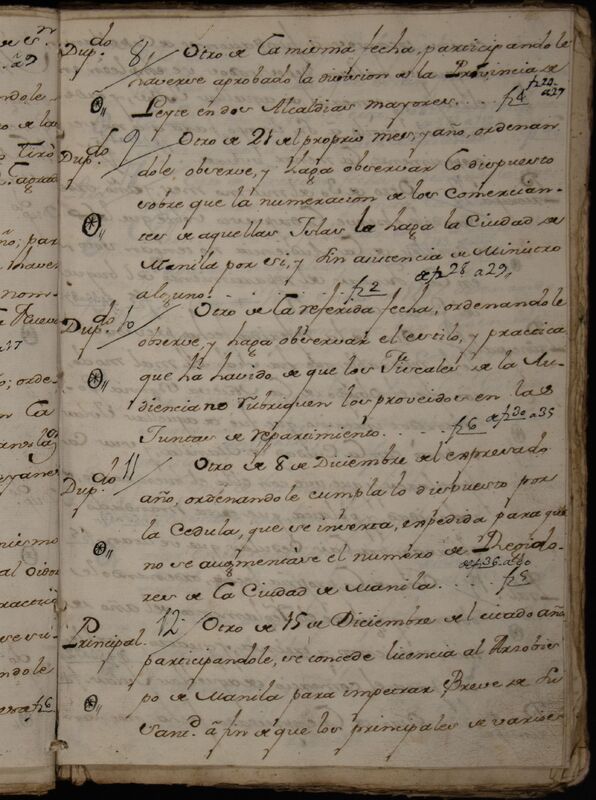 Dup.do 8, Otro de la misma fecha, participandole
haverse aprobado la division de la Provincia de
Leyte en dos Alcaldias mayores. . . f 4 f 24 a 27
Dup.do 9 Otro de 21 del proprio mes, y año, ordenan
dole, observe, y haga observar lo dispuesto
sobre que la numeracion de los Comercian-
tes de aquellas Islas la haga la Ciudad de
Manila por si, y sin asistencia de Ministro
alguno. . . . f 2 de f 28 a 29,
Dup.do 10 Otro de la referida fecha, ordenandole
observe, y haga observar el estilo, y practica
que ha havido de que los Fiscales de la Au-
diencia no rubriquen los proveidos en las
Juntas de repartimiento. . . . f 6 de f 30 a 35
Dup.do 11 Otro de 8 de Diciembre del expresado
año, ordenandole cumpla lo dispuesto por
la Cedula, que se inserta, expedida para que
no se augmentase el numero de Regido-
res de la Ciudad de Manila. . . . f 5 de f 36 a 40
Principal. 12. Otro de 15 de Diciembre del citado año
participandole, se concede licencia al Arzobis
po de Manila para impetrar Breve de Su
Sant.d â fin de que los principales de varios